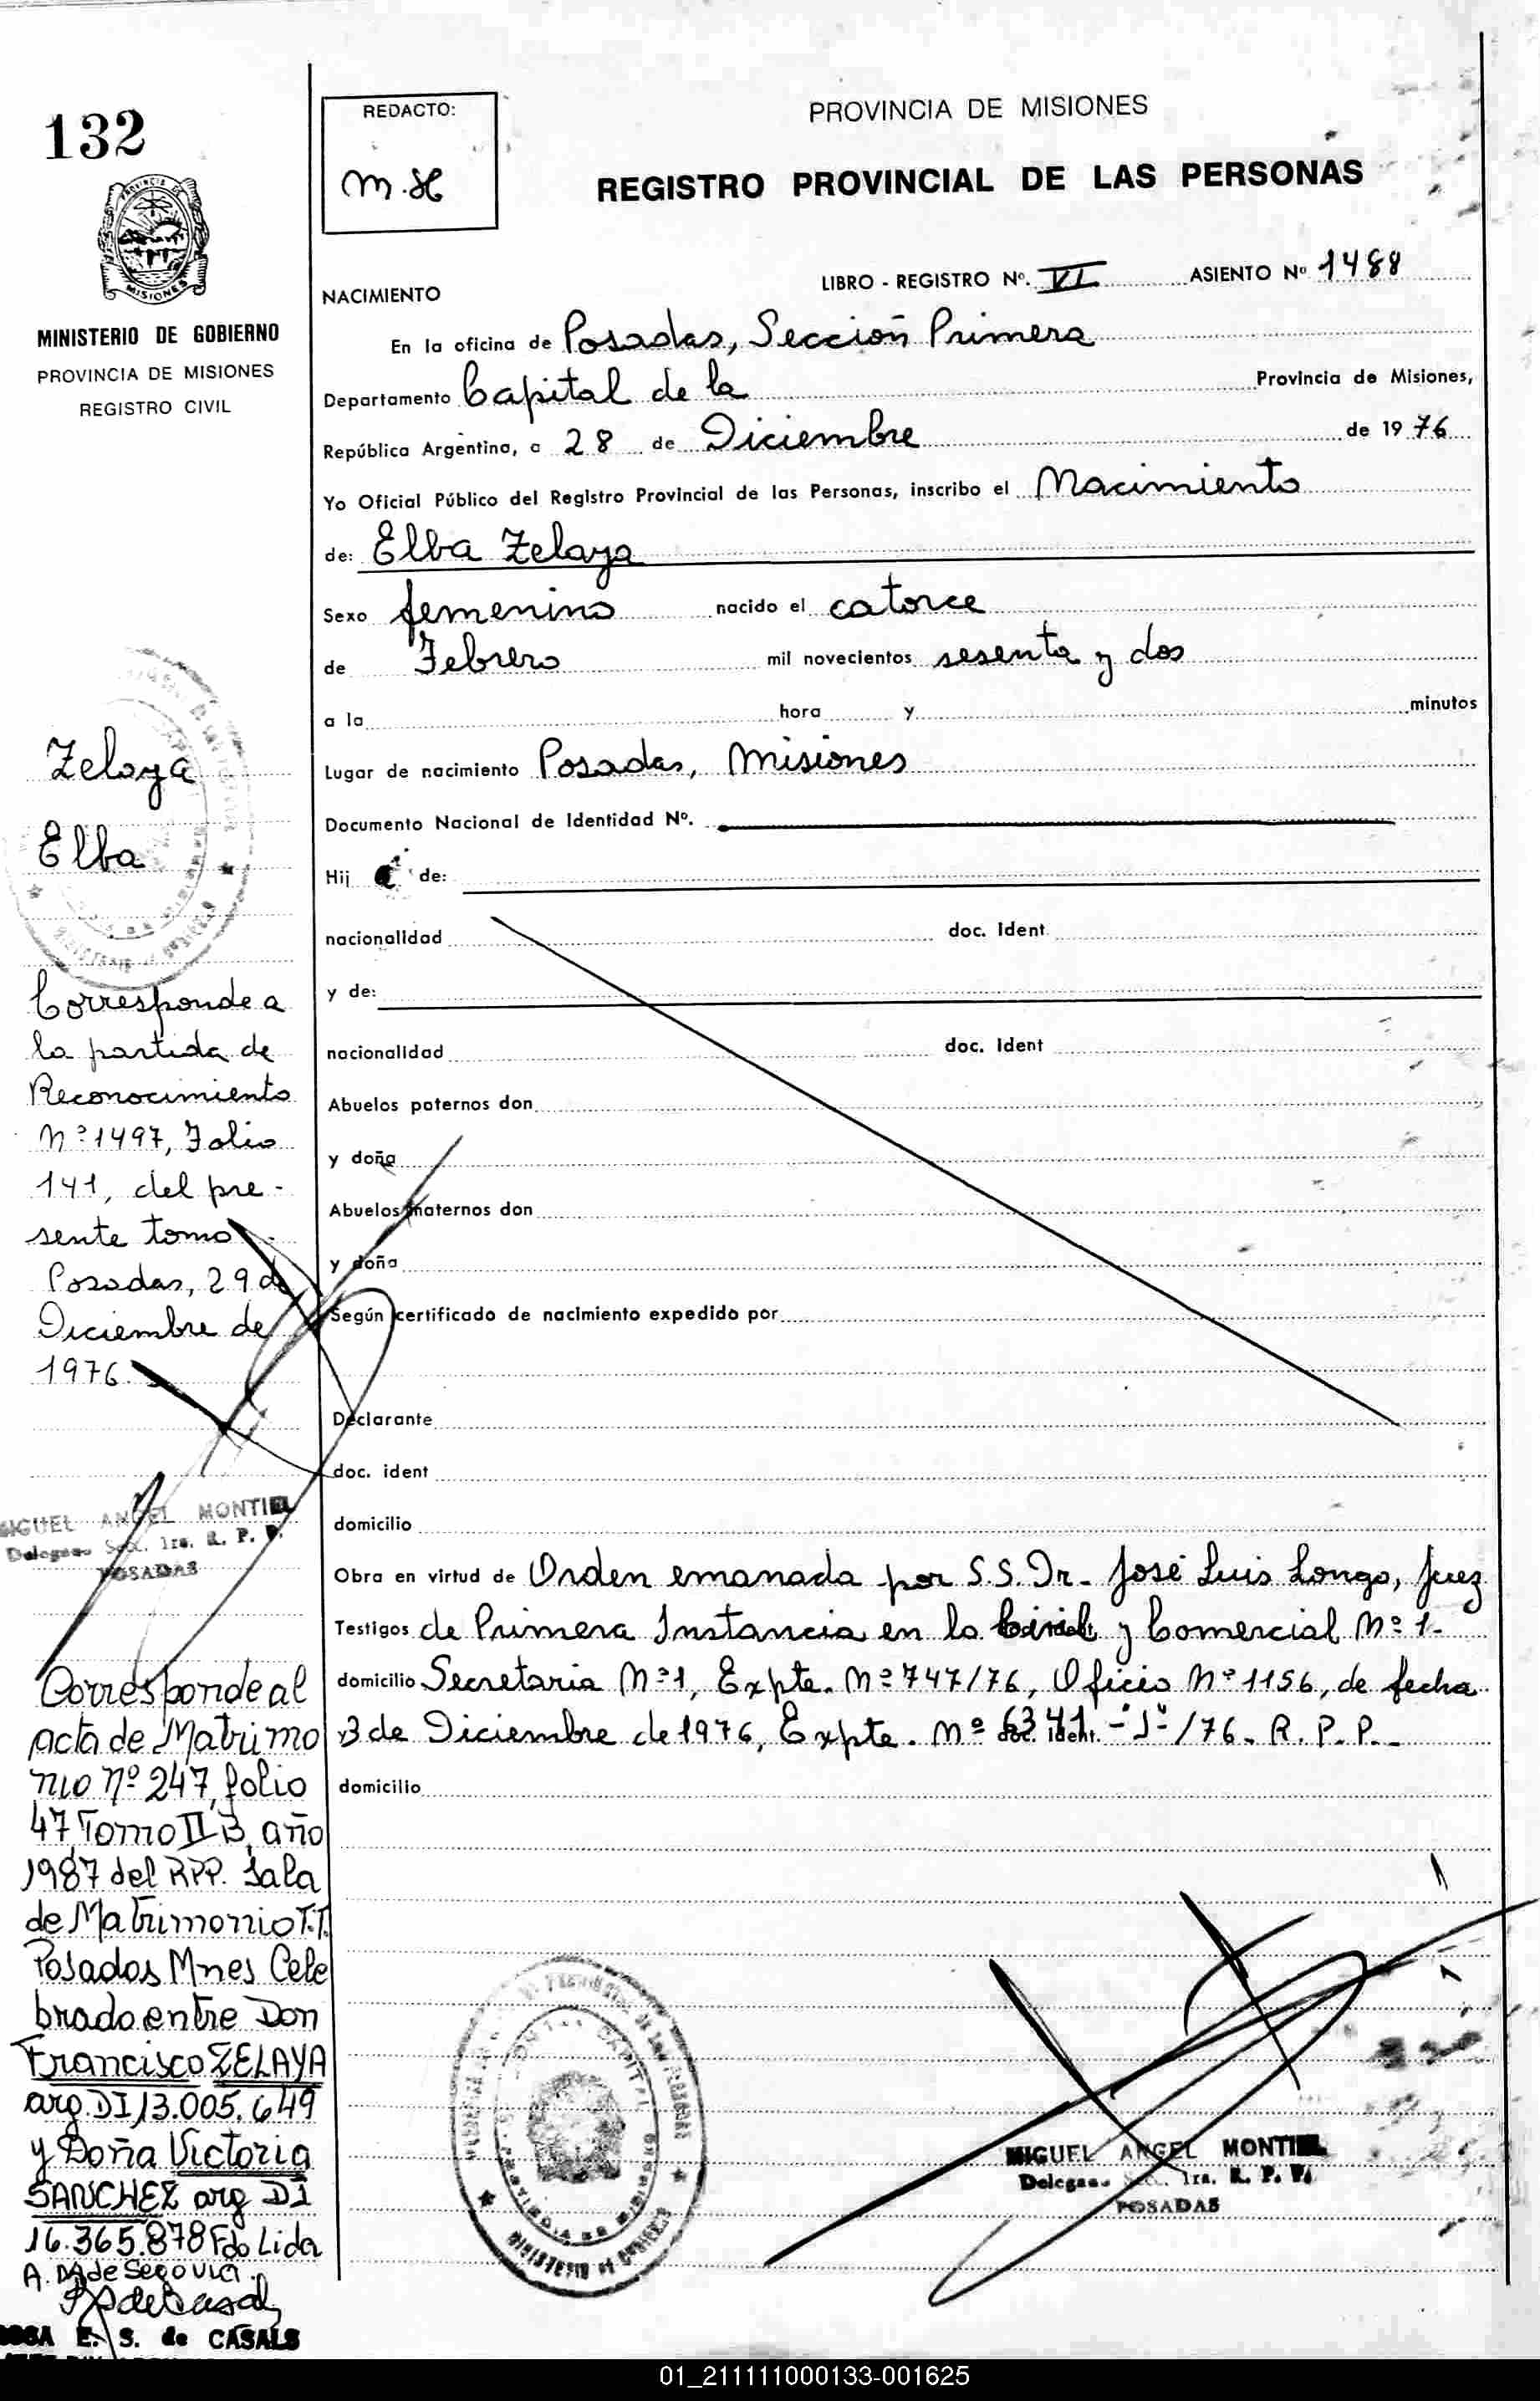 132
MINISTERIO DE GOBIERNO
PROVINCIA DE MISIONES
REGISTRO CIVIL
REDACTO:
M.H
PROVINCIA DE MISIONES
REGISTRO PROVINCIAL DE LAS PERSONAS
LIBRO - REGISTRO Nº. VI ASIENTO Nº 1488
NACIMIENTO
En la oficina de Posadas, Sección Primera
Departamento Capital de la Provincia de Misiones,
República Argentina, a 28 de Diciembre de 1976
Yo Oficial Público del Registro Provincial de las Personas, inscribo el Nacimiento
de: Elba Zelaya
Sexo femenino nacido el catorce
de Febrero mil novecientos sesenta y dos
a la hora y minutos
Lugar de nacimiento Posadas, Misiones
Documento Nacional de Identidad Nº.
Hij a de:
nacionalidad doc. Ident
y de:
nacionalidad doc. Ident
Abuelos paternos don
y doña
Abuelos maternos don
y doña
Según certificado de nacimiento expedido por
Declarante
doc. ident
domicilio
Obra en virtud de Orden emanada por S.S. Dr. José Luis Longo, Juez
Testigos de Primera Instancia en lo Civil y Comercial Nº 1-
domicilio Secretaria Nº 1, Expte. Nº 747/76, Oficio Nº 1156, de fecha
3 de Diciembre de 1976, Expte. Nº 6341 doc. ident. -"J"-/76. R. P. P.-
domicilio
MIGUEL ANGEL MONTIEL
Delegado Sec. 1ra. R. P. P.
POSADAS
Zelaya
Elba
Corresponde a
la partida de
Reconocimiento
Nº 1497, Folio
141, del pre-
sente tomo.
Posadas, 29 de
Diciembre de
1976.
MIGUEL ANGEL MONTIEL
Delegado Sec. 1ra. R. P. P.
POSADAS
Corresponde al
acta de Matrimo
nio nº 247, folio
47, Tomo II B, año
1987 del RPP. Sala
de Matrimonio T.T.
Posadas Mnes Cele
brado entre Don
Francisco ZELAYA
arg. DI 13.005.649
y Doña Victoria
SANCHEZ arg DI
16.365.878 Fdo Lida
A. de Segovia.
E. S. de CASALS
01_211111000133-001625